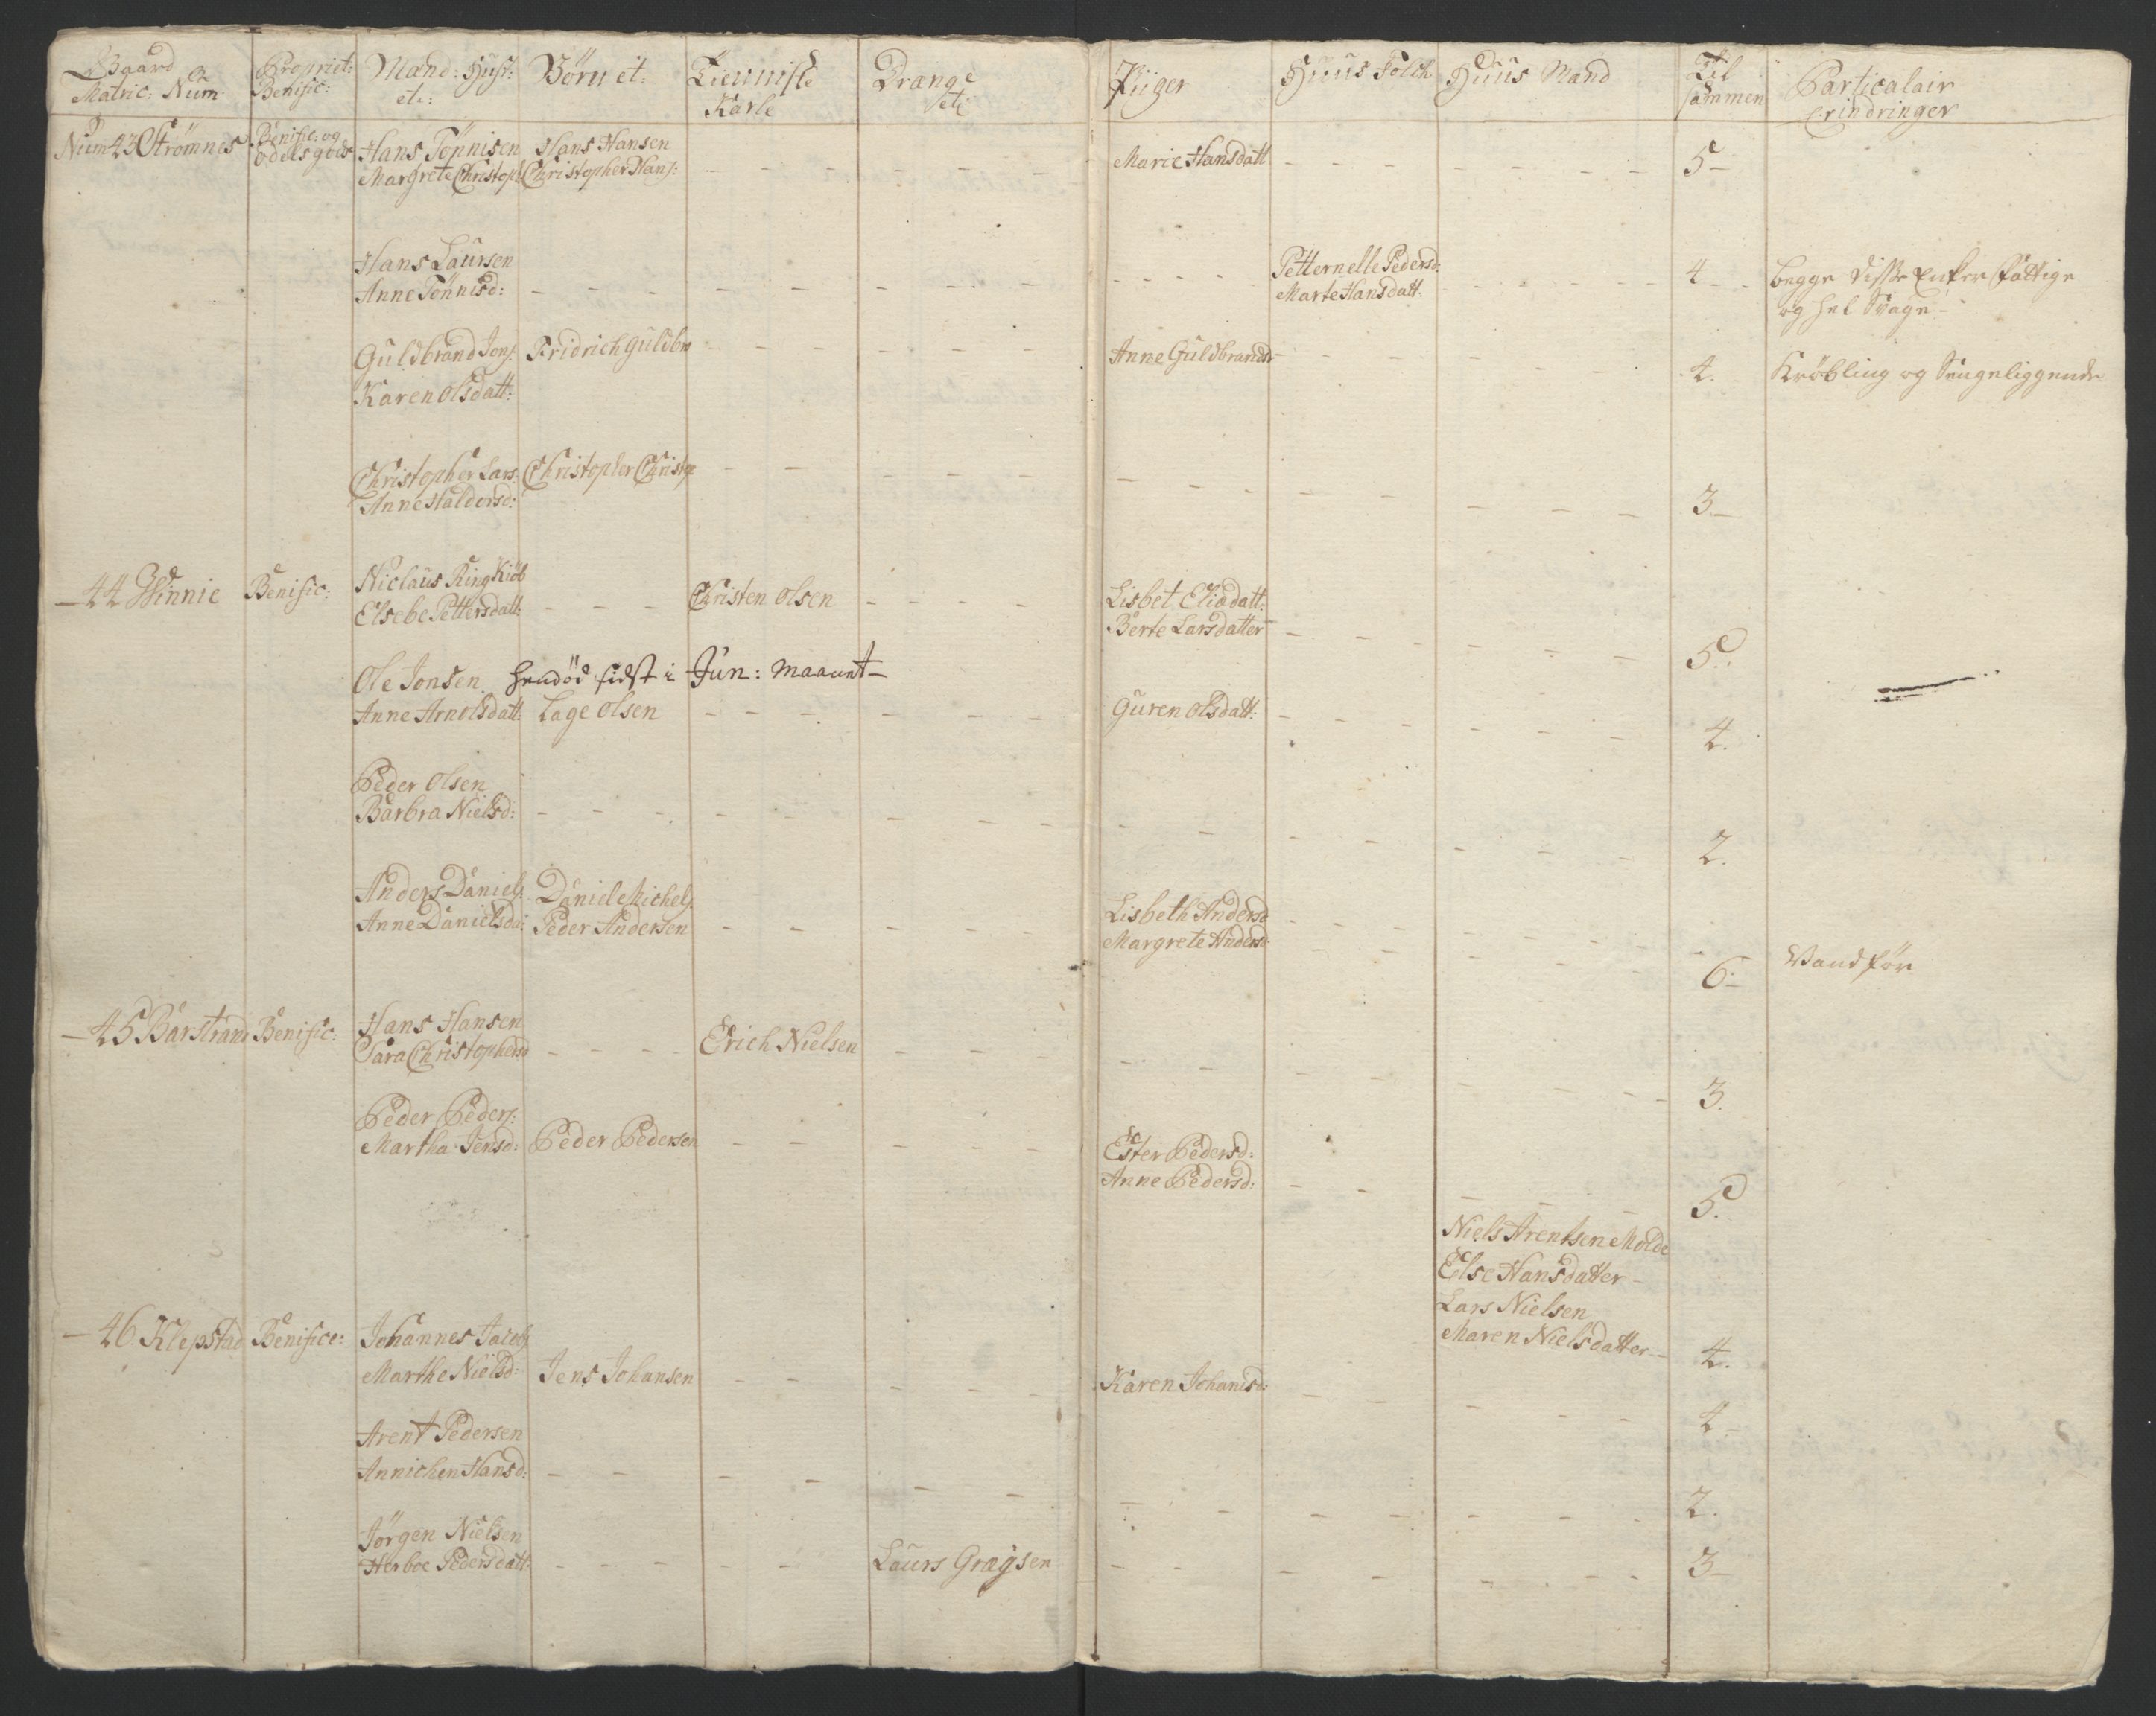 Gaard og
Matric: Num
Propriet:
Benific:
Mand: Hust:
etc:
Börn et:
Tienniste
Karle
Drænge
etc
Piiger
Huus Folch
Huus Mand
Til
sammen
Particulair
erindringer
Num 43 Strömnes
Benific: og
Odelsgods
Hans Tönnisen
Margrete Christoph
Hans Hansen
Christopher Hans:
Marie Hansdatt
5
Hans Laursen
Anne Tönnisd:
Petternelle Pedersd:
Marte Hansdatt:
4
begge disse Enker fattige
og hel Svage
Guldbrand Jons:
Karen Olsdatt:
Fridrich Guldbr
Anne Guldbrandsd
4.
Kröbling og Sengeliggende
Christopher Lars:
Anne Haldorsd:
Christopher Christop
3
44 Winnie
Benific:
Niclaus Ring Kiöb
Elsebe Pettersdatt:
Christen Olsen
Lisbet Eliædatt:
Berte Larsdatter
5.
Ole Jonsen hendöd sidst i Jun: Maanet
Anne Arnolsdatt:
Lage Olsen
Guren Olsdatt:
4.
Peder Olsen
Barbra Nielsd:
2.
Anders Daniels:
Anne Danielsda:
Daniel Michels:
Peder Andersen
Lisbeth Andersd
Margrete Andersd:
6.
Vandför
45 Barstrand
Benific:
Hans Hansen
Sara Christophersd
Erich Nielsen
3.
Peder Peders:
Martha Jensd:
Peder Pedersen
Ester Pedersd:
Anne Pedersd:
5.
Niels Arentsen Molde
Else Hansdatter
Lars Nielsen
Maren Nielsdatter
4.
46. Klepstad
Benifice:
Johannes Jacobs
Marthe Nielsd:
Jens Johansen
Karen Johanisd:
4
Arent Pedersen
Annichen Hansd:
2.
Jörgen Nielsen
Herboe Pedersdatt:
Laurs Græjsen
3